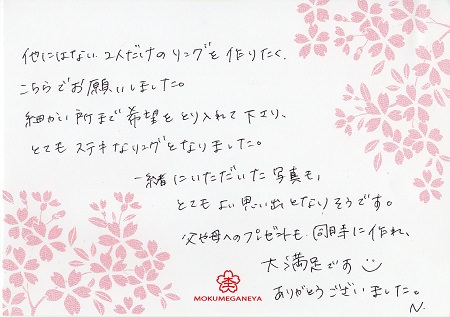 他にはない2人だけのリングを作りたく、
こちらでお願いしました。
細かい所まで希望をとり入れて下さり、
とてもステキなリングとなりました。
一緒にいただいた写真も、
とてもよい思い出となりそうです。
父や母へのプレゼントも同時に作れ、
大満足です
ありがとうございました。
N.
MOKUMEGANEYA